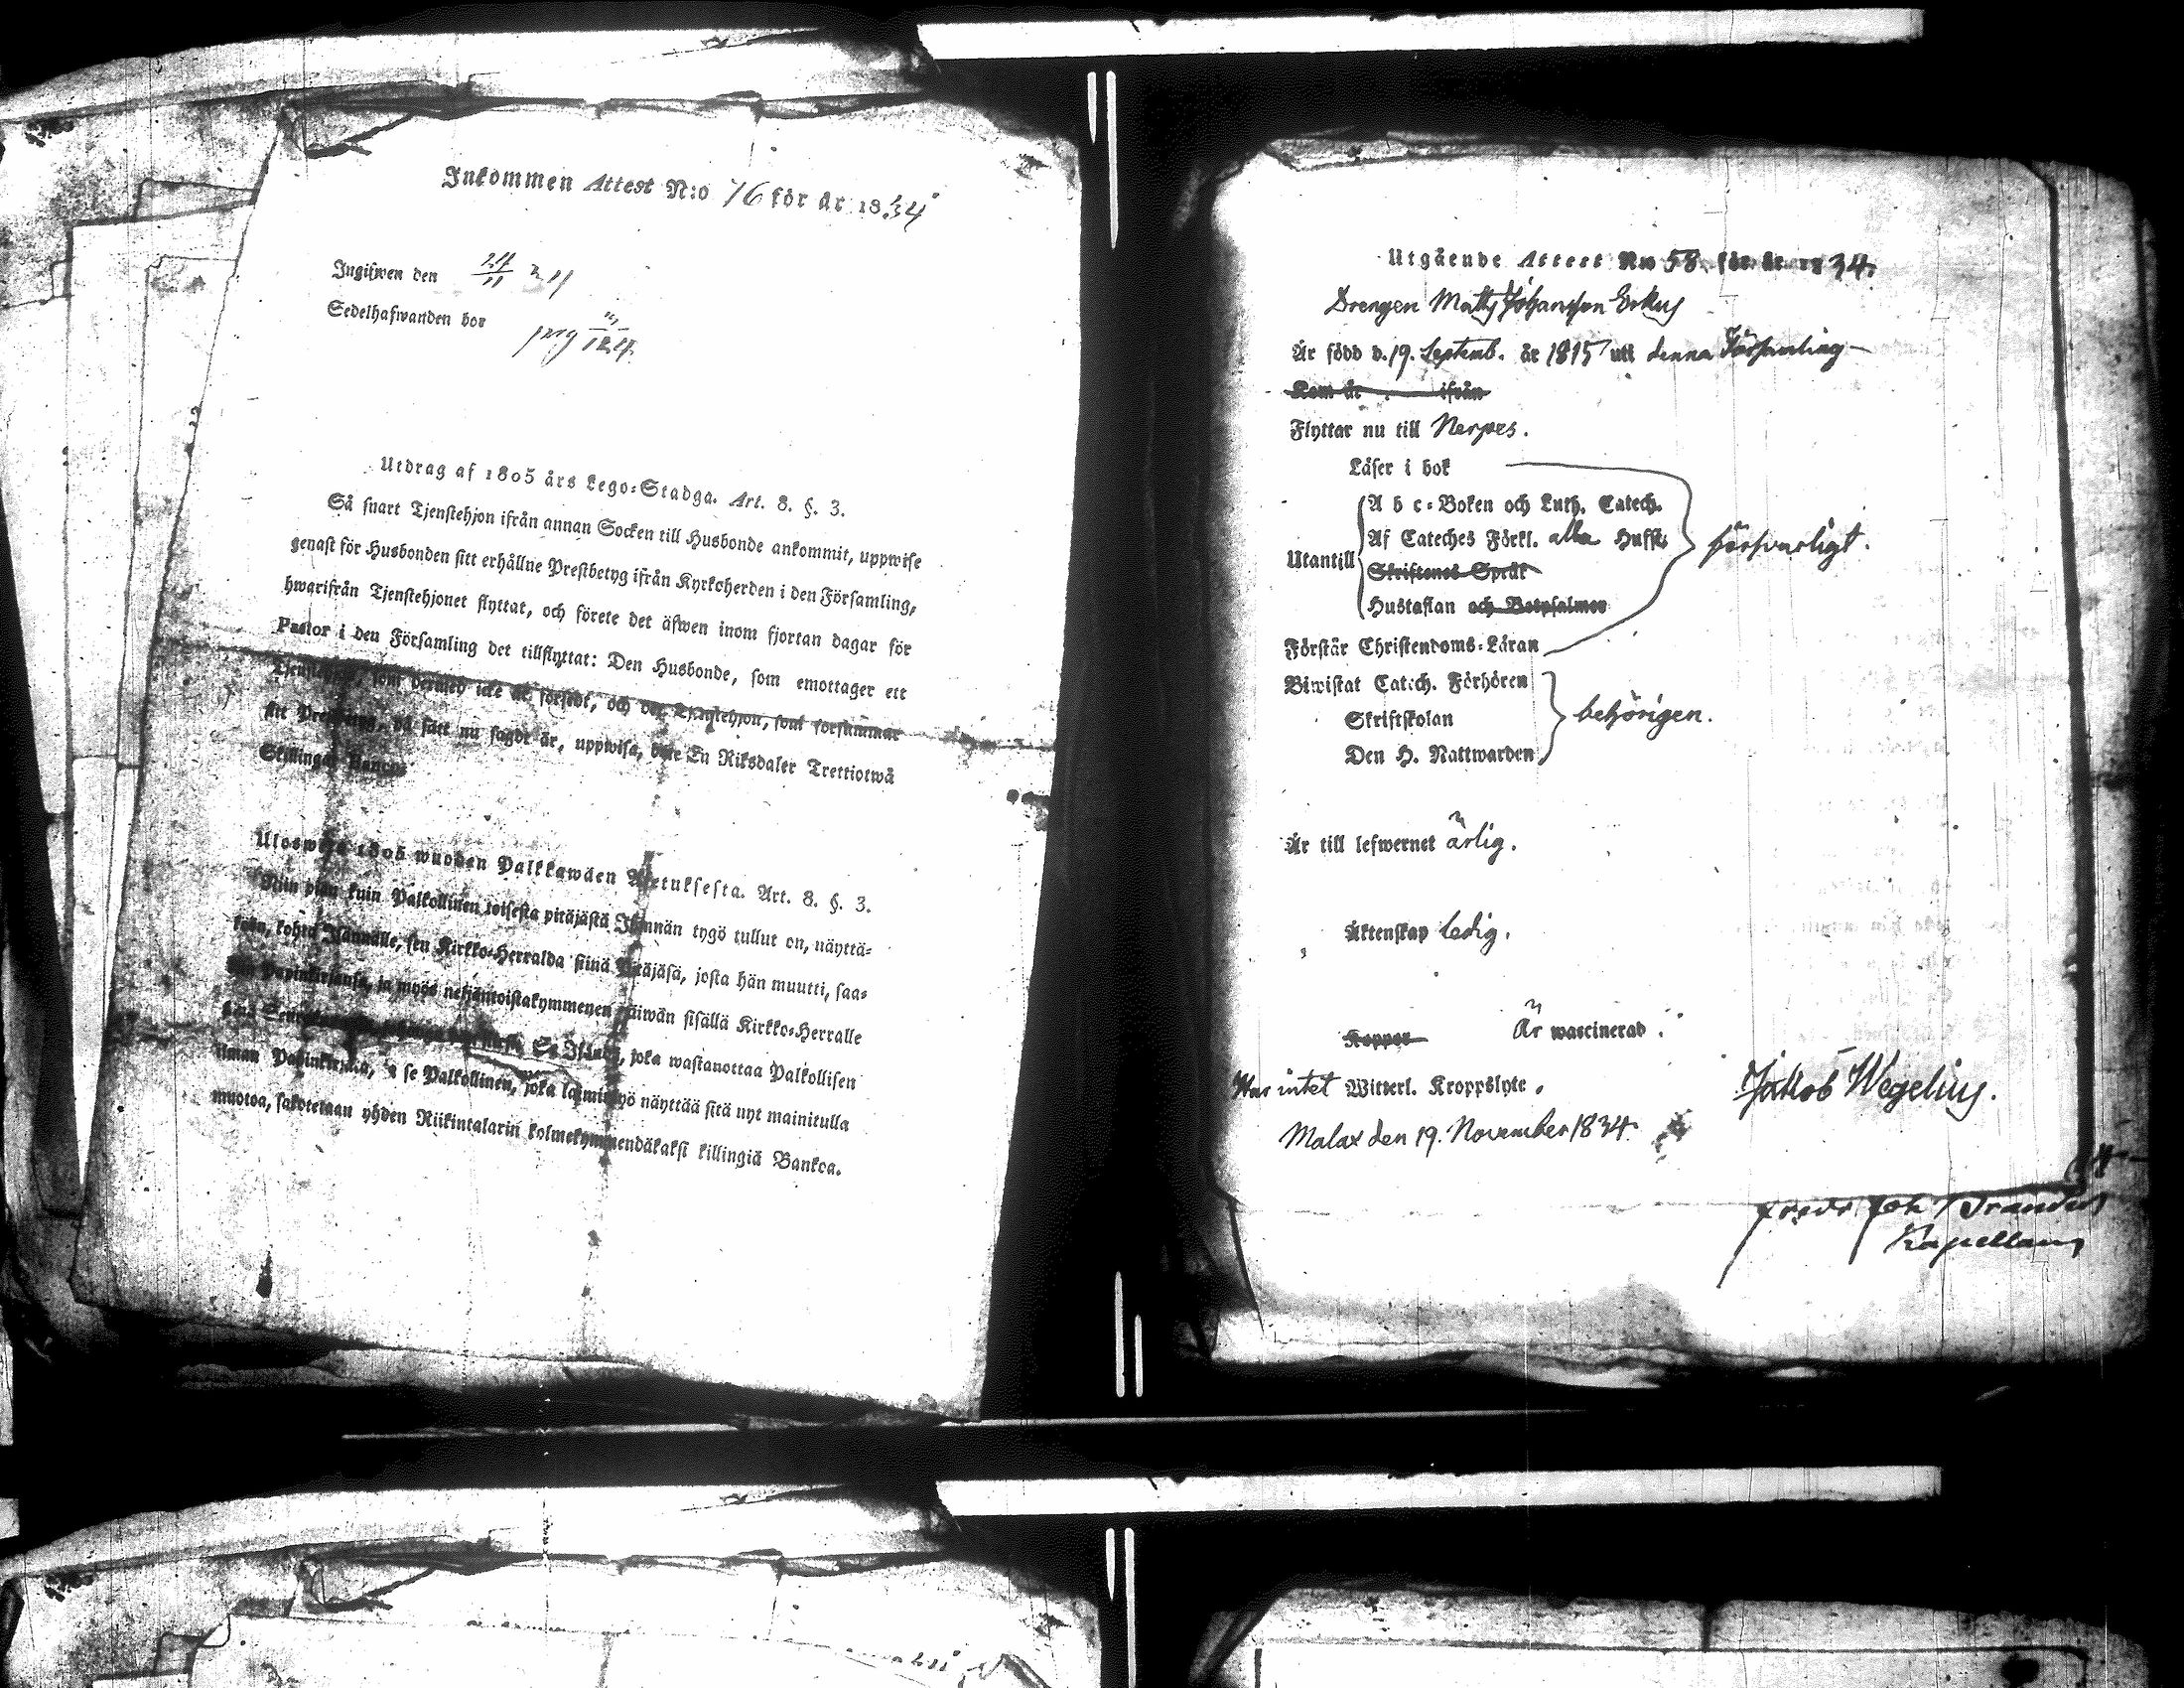 Inkommen Attest N:o 76 för år 1834
Ingifwen den 24/11 34
Sedelhafwanden bor
pag 124.
Utdrag af 1805 års Lego-Stadga. Art. 8. §. 3.
Så snart Tjenstehjon ifrån annan Socken till Husbonde ankommit, uppwise
genast för Husbonden sitt erhållne Prestbetyg ifrån Kyrkoherden i den Församling,
hwarifrån Tjenstehjonet flyttat, och förete det äfwen inom fjortan dagar för
Pastor i den Församling det tillflyttat: Den Husbonde, som emottager ett
Tjenstehjon, som dermed icke är försedt, och det Tjenstehjon, som försummar
sitt Prestbetyg, på sätt nu sagdt är, uppwisa, böte En Riksdaler Trettiotwå
Skillingar Banco.
Uloswetä 1805 wuoden Palkkawäen Asetuksesta. Art. 8. §. 3.
Niin pian kuin Palkollinen toisesta pitäjästä Isännän tygö tullut on, näyttä-
kään, kohta Isännälle, sen Kirkko-Herralda siinä Pitäjäsä, josta hän muutti, saa-
dun Papinkirjansa, ja myös neljäntoistakymmenen päiwän sisällä Kirkko-Herralle
siinä Seurakunnasa, Se Isändä, joka wastanottaa Palkollisen
ilman Papinkirjata, ja se Palkollinen, joka laiminlyö näyttää sitä nyt mainitulla
muotoa, sakotetaan yhden Riikintalarin kolmekymmendäkaksi killingiä Bankoa.
Utgående Attest N:o 58 för år 1834.
Drengen Matts Johansson Erkus
Är född d. 19. Septemb. år 1815 uti denna Församling
Kom år ifrån
Flyttar nu till Nerpes.
Läser i bok
A b c-Boken och Luth. Catech.
Af Cateches Förkl. alla Hufst.
Utantill
försvarligt.
Skriftenes Språk
Hustaflan och Botpsalmer
Förstår Christendoms-Läran
Biwistat Catech. Förhören
Skriftskolan
behörigen.
Den H. Nattwarden
Är till lefwernet ärlig.
Äktenskap ledig.
Koppor Är waccinerad.
Har intet Witterl. Kroppslyte.
Jakob Wegelius.
Malax den 19. November 1834.
Kapellan